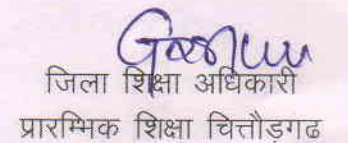 जिला शिक्षा अधिकारी
प्रारम्भिक शिक्षा चित्तौड़गढ